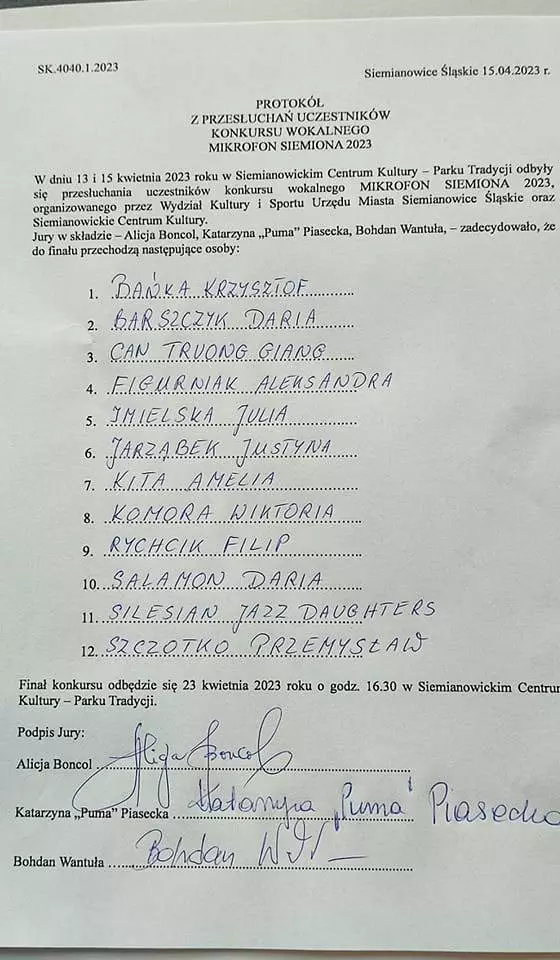 SK.4040.1.2023
Siemianowice Śląskie 15.04.2023 r.
PROTOKÓŁ
Z PRZESŁUCHAŃ UCZESTNIKÓW
KONKURSU WOKALNEGO
MIKROFON SIEMIONA 2023
W dniu 13 i 15 kwietnia 2023 roku w Siemianowickim Centrum Kultury – Parku Tradycji odbyły
się przesłuchania uczestników konkursu wokalnego MIKROFON SIEMIONA 2023,
organizowanego przez Wydział Kultury i Sportu Urzędu Miasta Siemianowice Śląskie oraz
Siemianowickie Centrum Kultury.
Jury w składzie – Alicja Boncol, Katarzyna „Puma” Piasecka, Bohdan Wantuła, – zadecydowało, że
do finału przechodzą następujące osoby:
1. BAŃKA KRZYSZTOF
2. BARSZCZYK DARIA
3. CAN TRUONG GIANG
4. FIGURNIAK ALEKSANDRA
5. IMIELSKA JULIA
6. JARZĄBEK JUSTYNA
7. KITA AMELIA
8. KOMORA WIKTORIA
9. RYCHCIK FILIP
10. SALAMON DARIA
11. SILESIAN JAZZ DAUGHTERS
12. SZCZOTKO PRZEMYSŁAW
Finał konkursu odbędzie się 23 kwietnia 2023 roku o godz. 16.30 w Siemianowickim Centrum
Kultury – Parku Tradycji.
Podpis Jury:
Alicja Boncol Alicja Boncol
Katarzyna „Puma” Piasecka Katarzyna „Puma” Piasecka
Bohdan Wantuła Bohdan